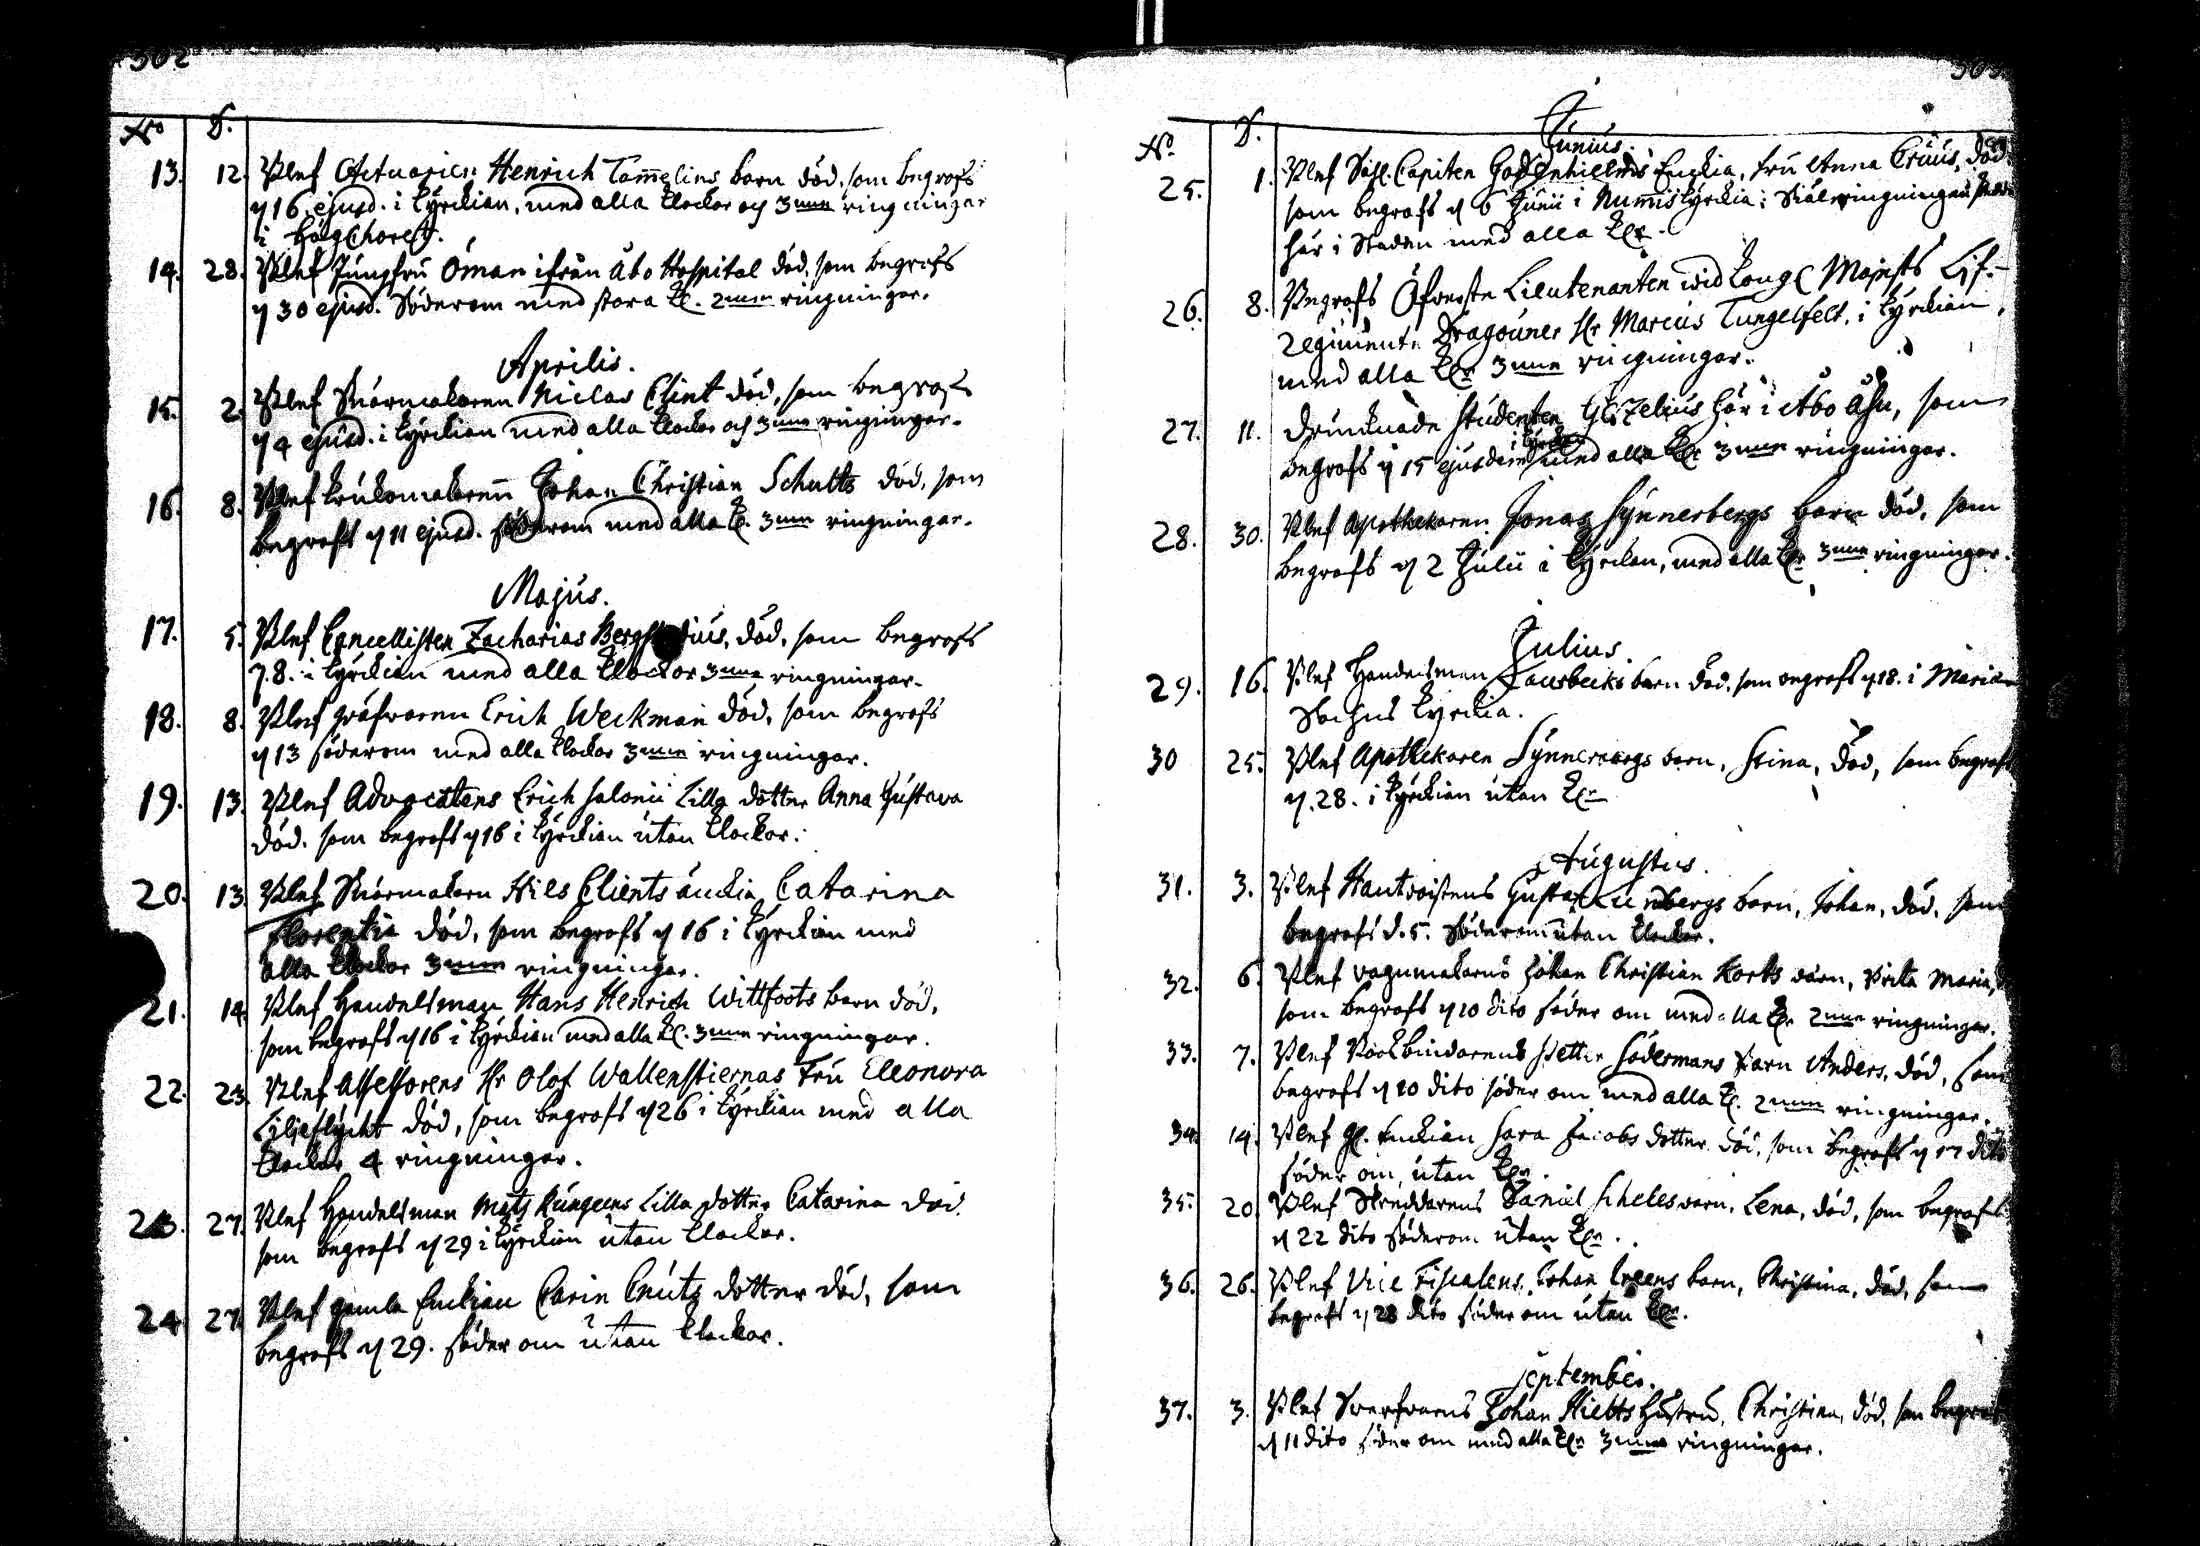 302
No D.
13. 12. Blef Actuarien Henrich Tam̅elins barn död, som begrofs
d 16 ejusd. i Kyrckian, med alla klockor och 3nne ringningar
i högchoret.
14. 28. Blef Jungfru Öman ifrån Åbo Hospital död, som begrofs
d 30 ejusd. Söderom med stora kl. 2nne ringningar.
Aprilis.
15. 2. Blef Snörmakaren Niclas Clint död, som begrofs
d 4 ejusd. i Kyrckian med alla klockor och 3nne ringningar.
16. 8. Blef krukomakaren̅ Johan Christian Schults död, som
begrofs d 11 ejusd. söderom med alla kl. 3nne ringningar.
Majus.
17. 5. Blef Cancellisten Zacharias död, som begrofs
d. 8. i Kyrckian med alla klockor 3nne ringningar.
18. 8. Blef gräfvaren Erich Weckman död, som begrofs
d 13 söderom med alla klockor 3nne ringningar.
19. 13. Blef Advocatens Erich Salonii lilla dotter Anna Gustava
död, som begrofs d 16 i Kyrckian utan klockor.
20. 13 Blef Snörmakarn Nils Clients änckia Catarina
Florentin död, som begrofs d 16 i Kyrckian med
alla klockor 3nne ringningar.
21. 14. Blef Handelsman Hans Henrich Wittfoots barn död,
som begrofs d 16 i Kyrckian med alla kl. 3nne ringningar.
22. 23. Blef Assessorens Hr Olof Wallenstiernas Fru Eleonora
Liljeflycht död, som begrofs d 26 i Kyrckian med alla
klockor 4 ringningar.
23. 27. Blef Handelsman Mats lilla dotter Catarina död
som begrofs d 29 i Kyrckian utan klockor.
24 27. Blef gamla Enckian Carin Cnuts dotter död, som
begrofs d 29. söder om utan klockor.
303
No. D.
Junius.
25. 1. Blef Sahl. Capiten Enckia, fru Anna Cruus, död
som begrofs d 6 Junii i Num̅is Kyrckia; Siälringningen
här i Staden med alla klr.
26. 8. Begrofs Öfverste Lieutenanten wid Kongl Majests Lif-
Regimente Dragouner Hr Marcus Tungelfelt, i Kyrckian,
med alla klr 3nne ringningar.
27. 11. Drunknade Studenten Gezelius här i Åbo Åhn, som
begrofs d 15 ejusdem i Kyrckan med alla klr 3nne ringningar.
28. 30. Blef Apothekaren Jonas Synnerbergs barn död, som
begrofs d 2 Julii i Kyrckan, med alla klr 3nne ringningar.
Julius.
29. 16. Blef Handelsman barn död, som begrofs d 18. i Mariæ
Sochns Kyrckia.
30 25. Blef Apothekaren Synnerbergs barn, Stina, död, som begrofs
d. 28. i Kyrckian utan klr
Augustus.
31. 3. Blef Hautboistens Gustaf Lundbergs barn, Johan, död, som
begrofs d. 5. Söderom utan klockor.
32. 6. Blef vagnmakarns Johan Christian Korts barn, Brita Maria,
som begrofs d 10 dito söder om med alla klr 2nne ringningar.
33. 7. Blef Bockbindarens Petter Södermans barn Anders, död, som
begrofs d 10 dito söder om med alla kl. 2nne ringningar.
34. 14. Blef gl. Enckian Sara Jacobs dotter död, som begrofs d 17 dito
söder om, utan klr.
35. 20. Blef Skreddarens Daniel Scheles barn, Lena, död, som begrofs
d 22 dito söderom utan klr.
36. 26. Blef Vice Fiscalens, Johan barn, Christina, död, som
begrofs d 28 dito söder om utan klr.
September.
37. 3. Blef Swarfvarens Johan hustru, Christina, död, som begrofs
d 11 dito söder om med alla klr 3nne ringningar.